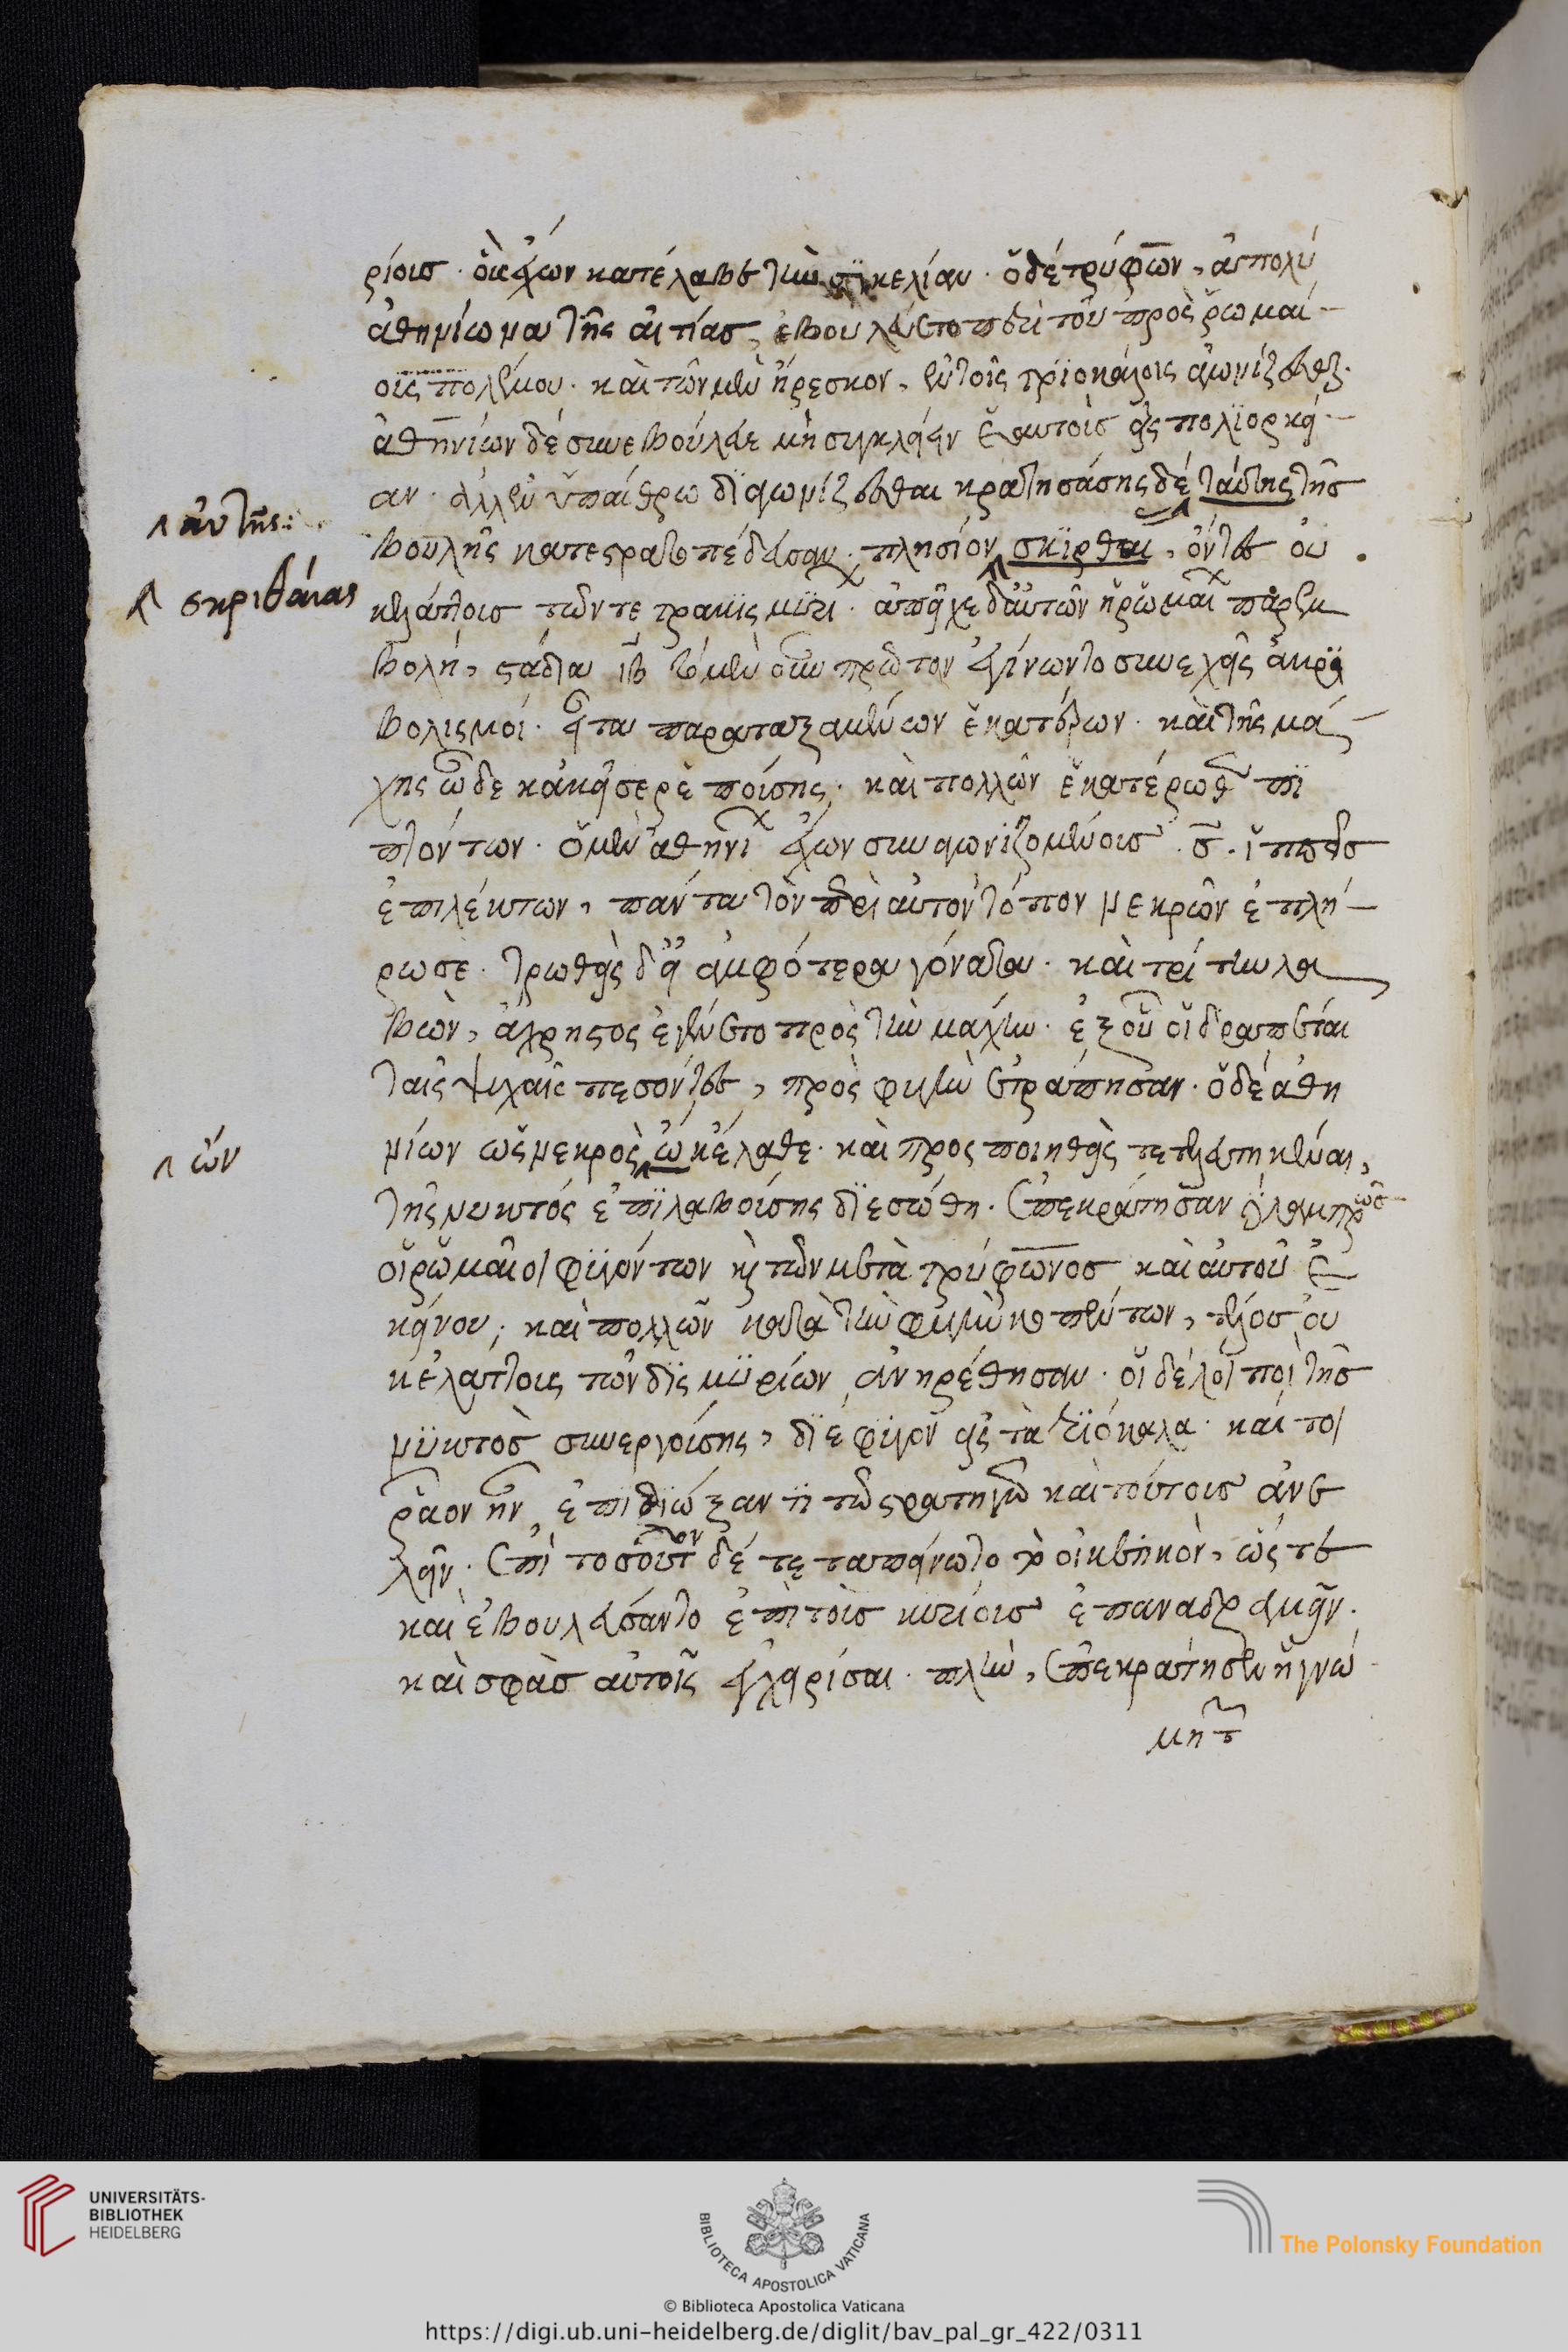 ρίοις · οὓς ἔχων κατέλαβε τὴν σικελίαν · ὁ δὲ τρύφων, ἀπολύ
ἀθηνίωνα τῆς αἰτίας, ἐβουλεύετο περὶ τοῦ πρὸς ῥωμαί-
οις πολέμου · καὶ τῶν μὲν ἤρεσκον, ἐν τοῖς τριοκάλοις ἀγωνίζεσθαι ·
ἀθηνίων δὲ συνεβούλευε μὴ συγκλείειν ἑαυτοὺς εἰς πολιορκεί-
αν · ἀλλ' ἐν ὑπαίθρω διαγωνίζεσθαι κρατησάσης δὲ ταύτης τῆς
βουλῆς κατεστρατοπέδευσαν · πλησίον σκιρθαι, ὄντες οὐ
κ ἐλάττοις τῶν τετρακισμυρι · ἀπεῖχε δ' αὐτῶν ἡ ῥωμαι παρεμ
βολή, στάδια ιβ τὸ μὲν οὖν πρῶτον ἐγίνωντο συνεχεῖς ἀκρο
βολισμοί · εἶτα παραταξαμένων ἑκατέρων · καὶ τῆς μά-
χης ὧδε κἀκεῖσε ῥεποίσης · καὶ πολλῶν ἑκατέρωθ πι
πτόντων · ὁ μὲν ἀθηνι ἔχων συναγωνιζομένοις · σ · ἱππεῖς
ἐπιλέκτων, πάντα τὸν περὶ αὐτὸν τόπον νεκρῶν ἐπλή-
ρωσε · τρωθεὶς δ' εἰ ἀμφότερα γόνατα · καὶ τρίτην λα
βὼν, ἄχρηστος ἐγένετο πρὸς τὴν μάχην · ἐξ οὗ οἱ δραπέται
ταῖς ψυχαῖς πεσόντες, πρὸς φυγὴν ἐτράπησαν · ὁ δὲ ἀθη
νίων ὡς νεκρὸς ὠκέλαθε · καὶ προσποιηθεὶς τετελευτηκέναι,
τῆς νυκτός ἐπιλαβοίσης διεσώθη · ἐπεκράτησαν δὲ λαμπρῶς
οἱ ῥωμαῖοι φυγόντων καὶ τῶν μετὰ τρύφωνος καὶ αὐτοῦ ἐ
κείνου · καὶ πολλῶν κατὰ τὴν φυγὴν κοπτέντων, τέλος οὐ
κ ἐλάττοις τῶν δισμυρίων ἀνηρέθησαν · οἱ δὲ λοιποὶ τῆς
νυκτὸς συνεργοίσης, διέφυγον εἰς τὰ τριόκαλα · καί τοι
ῥᾶον ἦν ἐπιδιώξαντι τῶ στρατηγῶ καὶ τούτοις ἀνε
λεῖν · ἐπὶ τοσοῦτον δέ τε ταπείνωτο τὸ οἰκετικὸν, ὥστε
καὶ ἐβουλεύσαντο ἐπὶ τοὺς κυρίοις ἐπαναδραμεῖν ·
καὶ σφᾶς αὐτοῖς ἐγχειρίσαι · πλὴν, ἐπεκράτησεν ἡ γνώ
μη τ
^ αὐτῆς :
^ σκριθαίας
^ ὢν
UNIVERSITÄTS-
BIBLIOTHEK
HEIDELBERG
BIBLIOTECA APOSTOLICA VATICANA
The Polonsky Foundation
© Biblioteca Apostolica Vaticana
https://digi.ub.uni-heidelberg.de/diglit/bav_pal_gr_422/0311